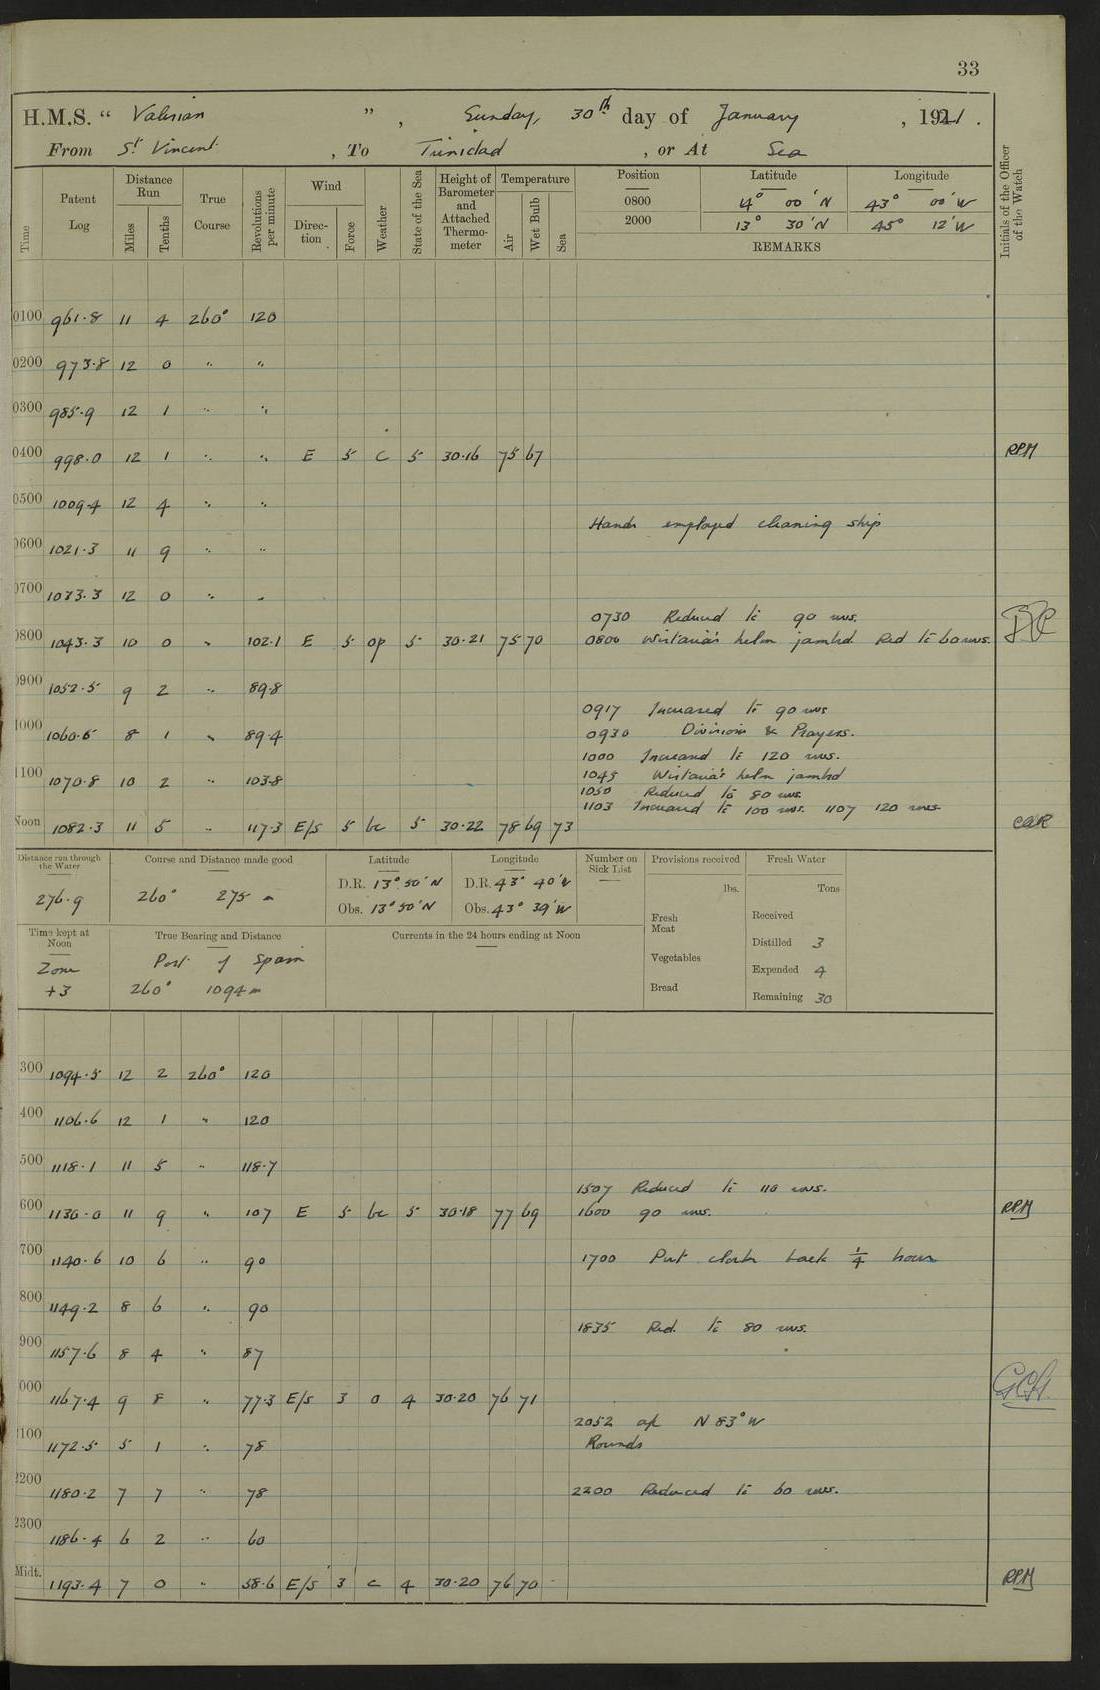 33
H.M.S. “ Valerian ” , Sunday, 30th day of January , 1921 .
From St Vincent. , To Trinidad , or At Sea
Time Patent Log Distance Run Miles Tenths True Course Revolutions per minute Wind Direction Force Weather State of the Sea Height of Barometer and Attached Thermometer Temperature Air Wet Bulb Sea Position Latitude Longitude Initials of the Officer of the Watch
0800 14° 00' N 43° 00' W
2000 13° 30' N 45° 12' W
REMARKS
0100 961.8 11 4 260° 120
0200 973.8 12 0 " "
0300 985.9 12 1 " "
0400 998.0 12 1 " " E 5 C 5 30.16 75 67 RPM
0500 1009.4 12 4 " "
Hands employed cleaning ship
0600 1021.3 11 9 " "
0700 1033.3 12 0 " "
0730 Reduced to 90 revs.
0800 1043.3 10 0 " 102.1 E 5 op 5 30.21 75 70 0800 Wistaria's helm jambd Red to 60 revs.
0900 1052.5 9 2 " 89.8
0917 Increased to 90 revs
1000 1060.6 8 1 " 89.4 0930 Divisions & Prayers.
1000 Increased to 120 revs.
1100 1070.8 10 2 " 103.8 1045 Wistaria's helm jambd
1050 Reduced to 80 revs.
1103 Increased to 100 revs. 1107 120 revs.
Noon 1082.3 11 5 " 117.3 E/S 5 bc 5 30.22 78 69 73 CGR
Distance run through the Water Course and Distance made good Latitude Longitude Number on Sick List Provisions received Fresh Water
276.9 260° 275 m D.R. 13° 50' N D.R. 43° 40' W lbs. Tons
Obs. 13° 50' N Obs. 43° 39' W Fresh Meat Received
Time kept at Noon True Bearing and Distance Currents in the 24 hours ending at Noon Distilled 3
Zone Port of Spain Vegetables Expended 4
+3 260° 1094 m Bread Remaining 30
300 1094.5 12 2 260° 120
400 1106.6 12 1 " 120
500 1118.1 11 5 " 118.7
1507 Reduced to 110 revs.
600 1130.0 11 9 " 107 E 5 bc 5 30.18 77 69 1600 90 revs. RPM
700 1140.6 10 6 " 90 1700 Put clocks back 1/4 hour
800 1149.2 8 6 " 90
1835 Red. to 80 revs.
900 1157.6 8 4 " 87
000 1167.4 9 8 " 77.3 E/S 3 o 4 30.20 76 71
2052 a/c N 83° W
2100 1172.5 5 1 " 78 Rounds
2200 1180.2 7 7 " 78 2200 Reduced to 60 revs.
2300 1186.4 6 2 " 60
Midt. 1193.4 7 0 " 58.6 E/S 3 c 4 30.20 76 70 RPM